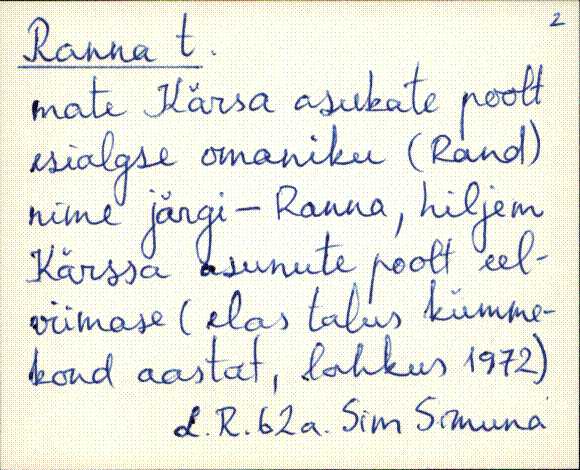 2
Ranna t.
mate Kärsa asukate poolt
esialgse omaniku (Rand)
nime järgi – Ranna, hiljem
Kärssa asunute poolt eel-
viimase (elas talus kümme-
kond aastat, lahkus 1972)
L.R. 62 a. Sim Simuna